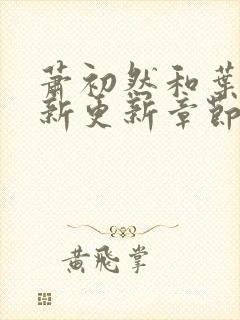 萧初然和叶
新更新章节
黄飞掌